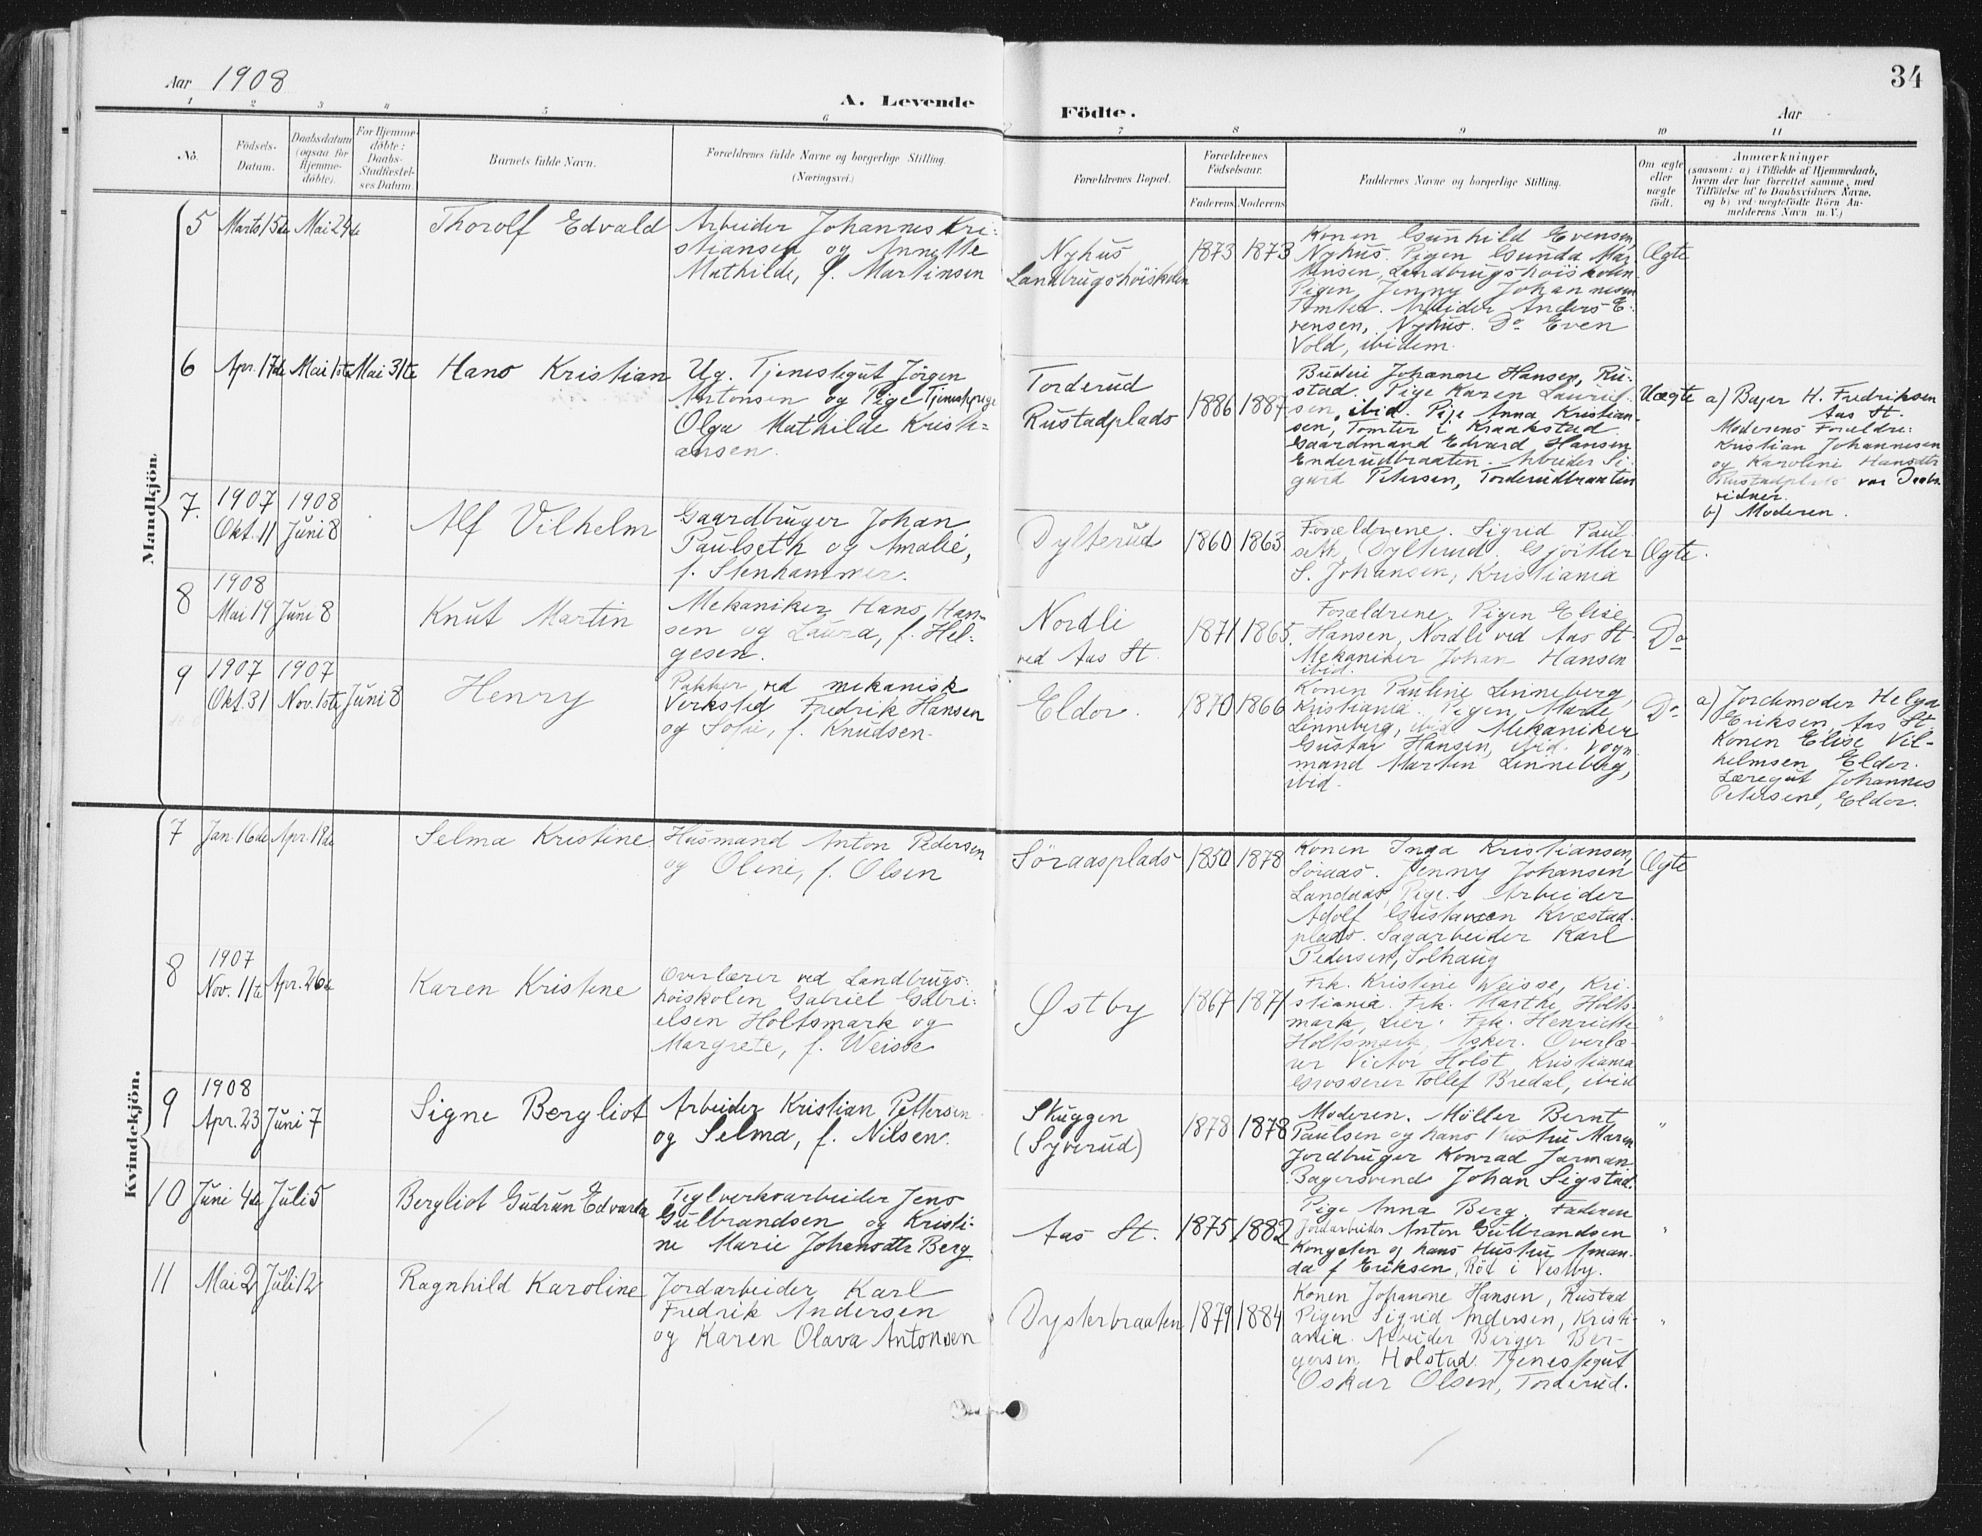 Aar 1908
A. Levende
Födte.
Aar
34
1 2 3 4 5 6 7 8 9 10 11
No.
Födsels-
Datum.
Daabsdatum
(ogsaa for
Hjemme-
døbte).
For Hjemme-
døbte:
Daabs-
Stadfæstel-
ses Datum.
Barnets fulde Navn.
Forældrenes fulde Navne og borgerlige Stilling.
(Næringsvei.)
Forældrenes Bopæl.
Forældrenes
Födselsaar.
Faderens. Moderens.
Faddernes Navne og borgerlige Stilling.
Om ægte
eller
uægte
födt.
Anmærkninger
(saasom: a) i Tilfælde af Hjemmedaab,
hvem der har forrettet samme, med
Tilföielse af to Daabsvidners Navne,
og b) ved uægtefödte Börn An-
melderens Navn m.V.)
Mandkjön.
5 Marts 15de Mai 24de
Thorolf Edvald
Arbeider Johannes Kri-
stiansen og Annette
Mathilde, f. Martinsen
Nyhus
Landbrugshöiskolen
1873 1873
Konen Gunhild Evensen,
Nyhus. Pigen Gunda Mar
tinsen, Landbrugshöiskolen.
Pigen Jenny Johannesen
Tomter. Arbeider Anders E-
vensen, Nyhus. Do Even
Vold, ibidem.
Ægte
6 Apr. 17de Mai 1ste Mai 31te
Hans Kristian
Ug. Tjenestegut Jörgen
Antonsen og Pige Tjenestepige
Olga Mathilde Kristi-
ansen.
Torderud
Rustadplads
1886 1887
Budeie Johanne Hansen, Ru-
stad. Pige Karen Laurit-
sen, ibid. Pige Anna Kristian-
sen, Tomter i Kraakstad.
Gaardmand Edvard Hansen
Enderudbraaten. Arbeider Si-
gurd Petersen, Torderudbraaten
Uægte
a) Bager H. Fredriksen
Aas St.
Moderens Forældre:
Kristian Johannesen
og Karoline Hansdtr
Rustadplads var Daabs-
vidner.
b) Moderen.
7. 1907 1908
Okt. 11 Juni 8
Alf Vilhelm
Gaardbruger Johan
Paulseth og Amalie,
f. Stenhammer.
Dylterud
1860 1863
Forældrene. Sigrid Paul
seth, Dylterud. Gjörtler
S. Johansen, Kristiania
Ægte.
8 1908
Mai 19 Juni 8
Knut Martin
Mekaniker Hans Han-
sen og Laura, f. Hel-
gesen.
Nordli
ved Aas St.
1871 1865.
Forældrene. Pigen Elise
Hansen, Nordli ved Aas St.
Mekaniker Johan Hansen
ibid.
Do
9 1907 1907
Okt. 31 Nov. 1ste Juni 8
Henry
Pakker ved mekanisk
Verksted Fredrik Hansen
og Sofie, f. Knudsen.
Eldor.
1870 1866
Konen Pauline Linneberg,
Kristiania. Pigen Marie
Linneberg, ibid Mekaniker
Gustav Hansen, ibid. Vogn
mand Martin Linneberg,
ibid.
Do
a) Jordmoder Helga
Eriksen, Aas St.
Konen Elise Vil-
helmsen Eldor.
Læregut Johannes
Petersen, Eldor.
Kvindekjön.
7 Jan. 16de Apr. 19de
Selma Kristine
Husmand Anton Pedersen
og Oline, f. Olsen
Söraasplads
1850 1878
Konen Inga Kristiansen,
Söraas. Jenny Johansen
Landaas, Pige. Arbeider
Adolf Gustavsen Kvæstad
plads. Sagarbeider Karl
Pedersen, Solhaug
Ægte
8 1907
Nov. 11te Apr. 26de
Karen Kristine
Overlærer ved Landbrugs-
höiskolen Gabriel Gabri-
elsen Holtsmark og
Margrete, f. Weisse
Østby
1867 1871
Frk. Kristine Weisse, Kri-
stiania. Frk. Marthe Holts-
mark, Lier. Frk. Henriette
Holtsmark, Asker. Overlæ-
rer Victor Holst, Kristiania
Grosserer Tollef Bredal, ibid
"
9 1908
Apr. 23 Juni 7
Signe Bergliot
Arbeider Kristian Pettersen
og Selma, f. Nilsen.
Skuggen
(Syverud)
1878 1878
Moderen. Möller Bernt
Paulsen og hans Hustru Maren
Jordbruger Konrad Jarman.
Bagersvend Johan Sigstad.
"
10 Juni 4de Juli 5
Bergliot Gudrun Edvarda
Teglverksarbeider Jens
Gulbrandsen og Kristi-
ne Marie Johansdtr Berg
Aas St.
1875 1882
Pige Anna Berg. Faderen
Jordarbeider Anton Gulbrandsen
Kongelen og hans Hustru Aman-
da f Eriksen, Röd i Vestby.
"
11 Mai 2 Juli 12
Ragnhild Karoline
Jordarbeider Karl
Fredrik Andersen
og Karen Olava Antonsen
Dysterbraaten
1879 1884
Konen Johanne Hansen, Rustad
Pigen Sigrid Andersen, Kristi-
ania. Arbeider Birger Ber-
gersen Holstad. Tjenestegut
Oskar Olsen, Torderud.
"